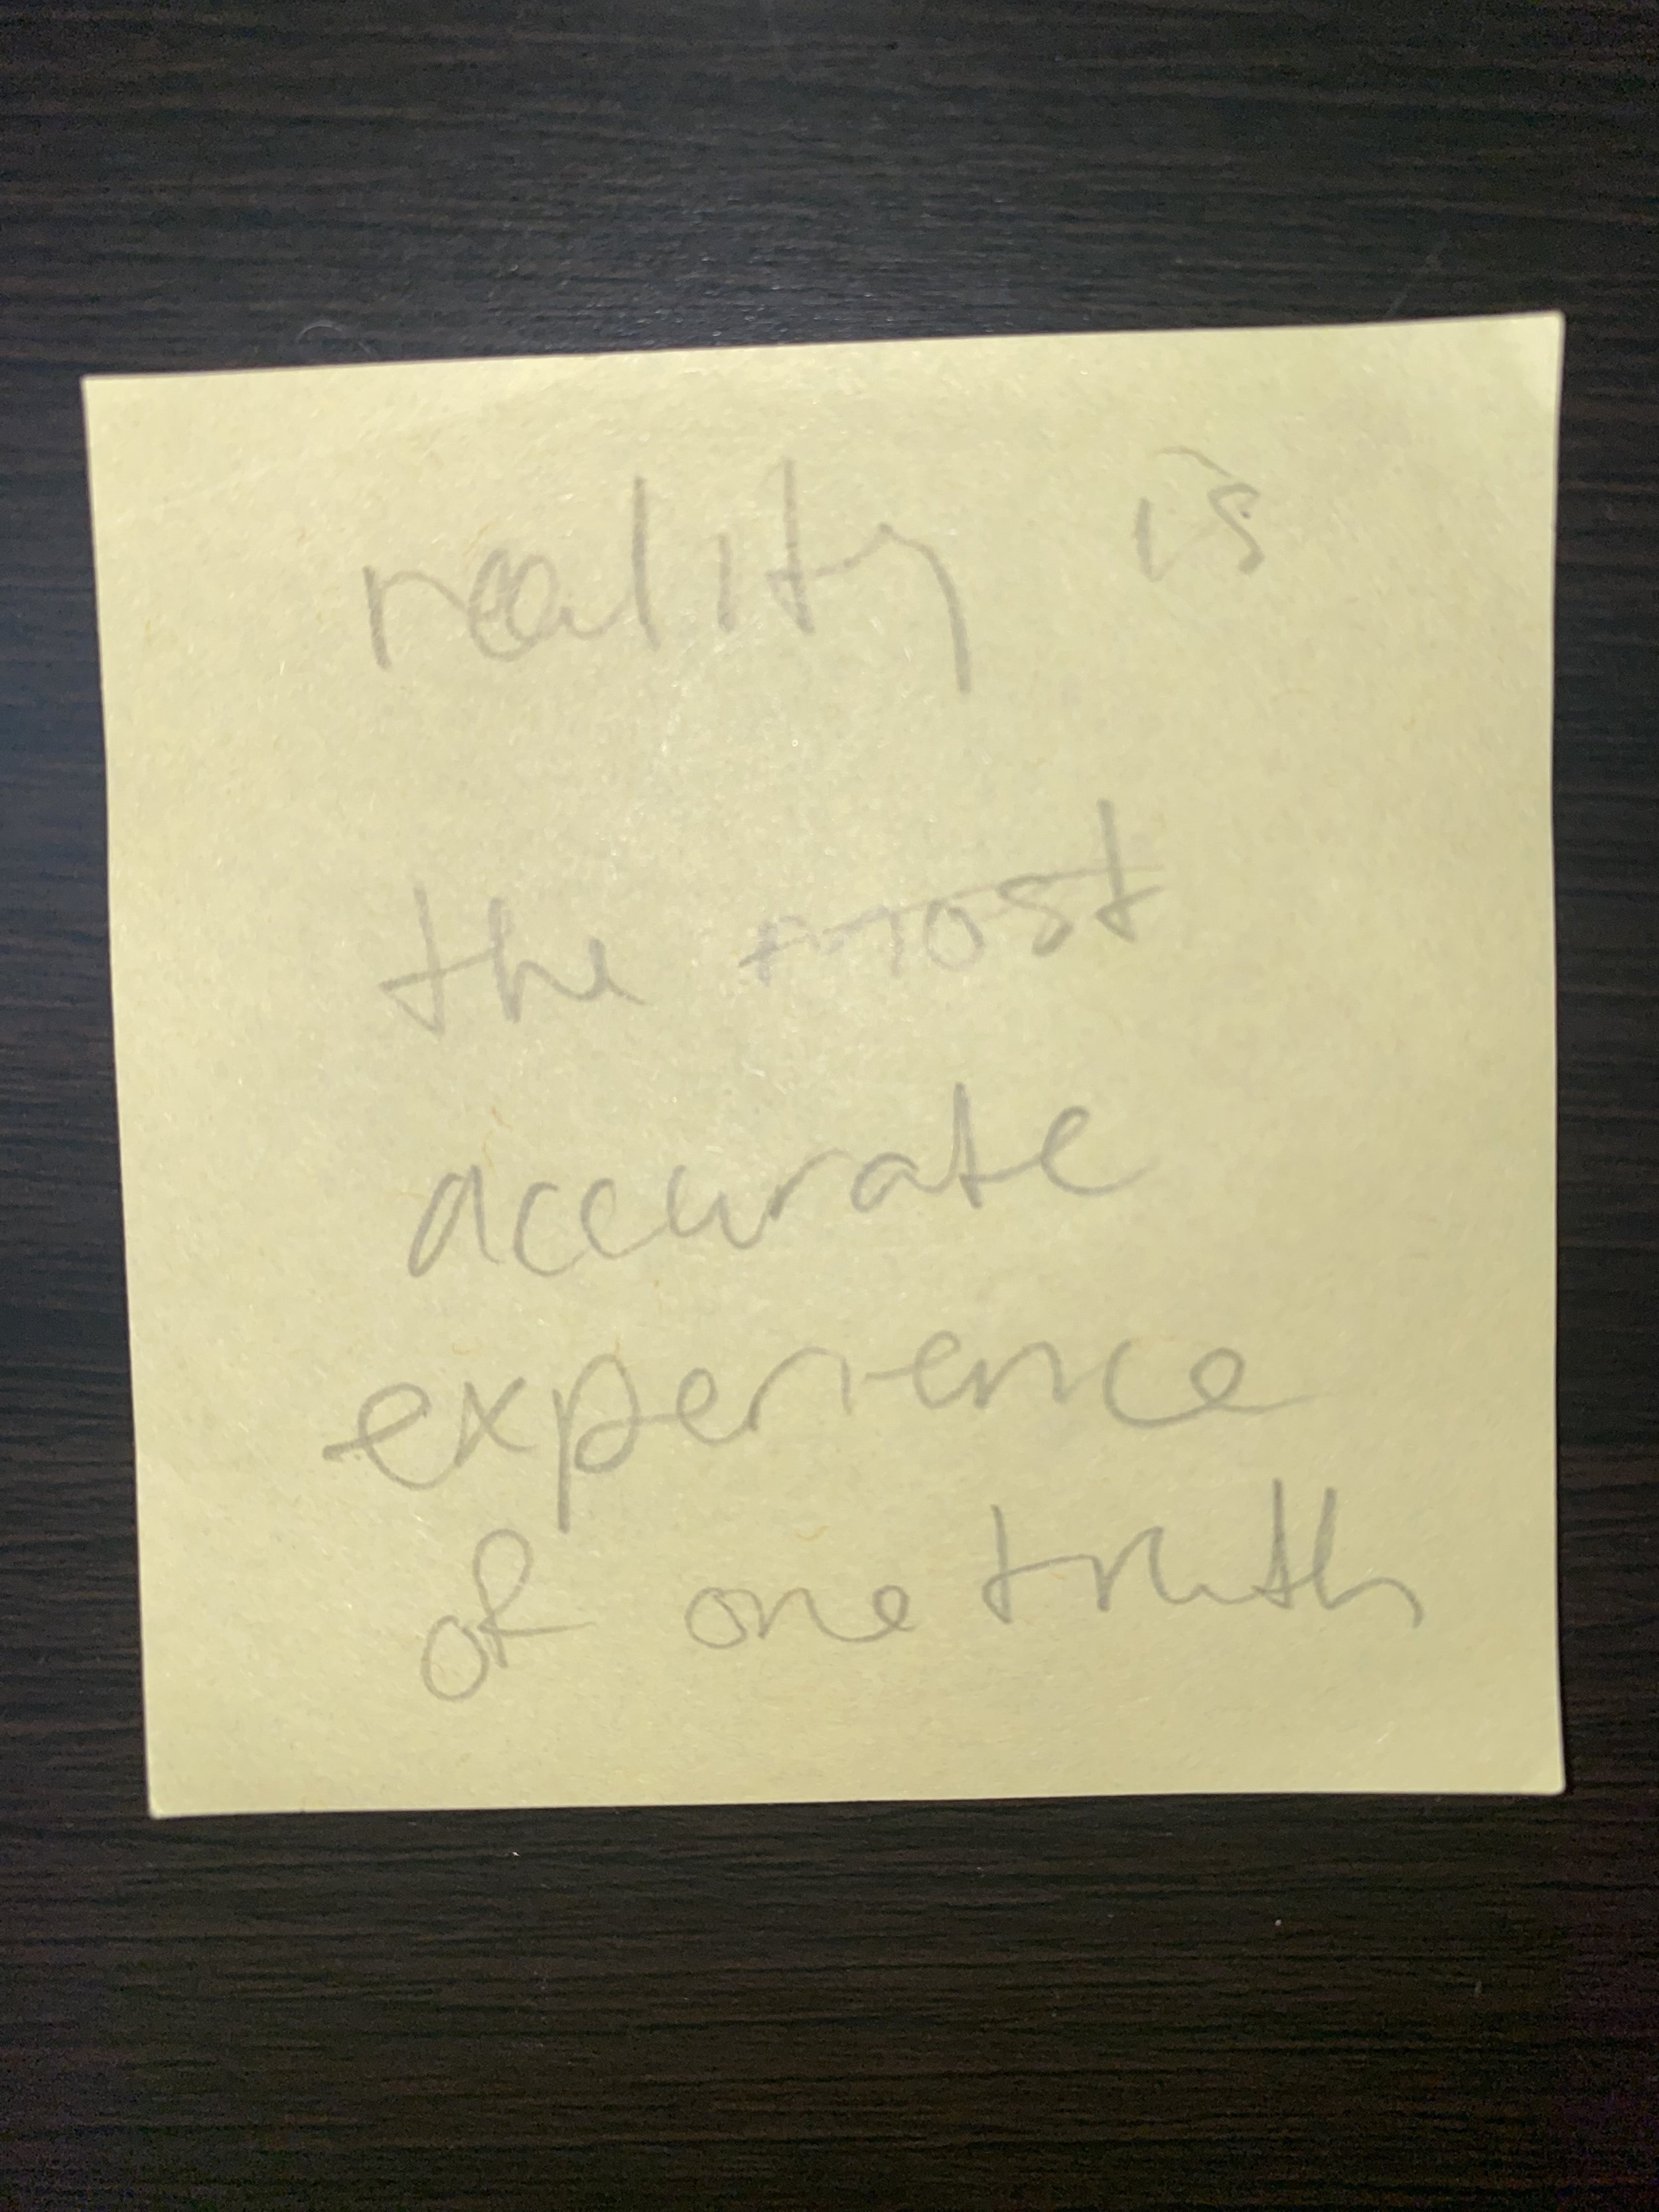 reality is
the most
accurate
experience
of one truth